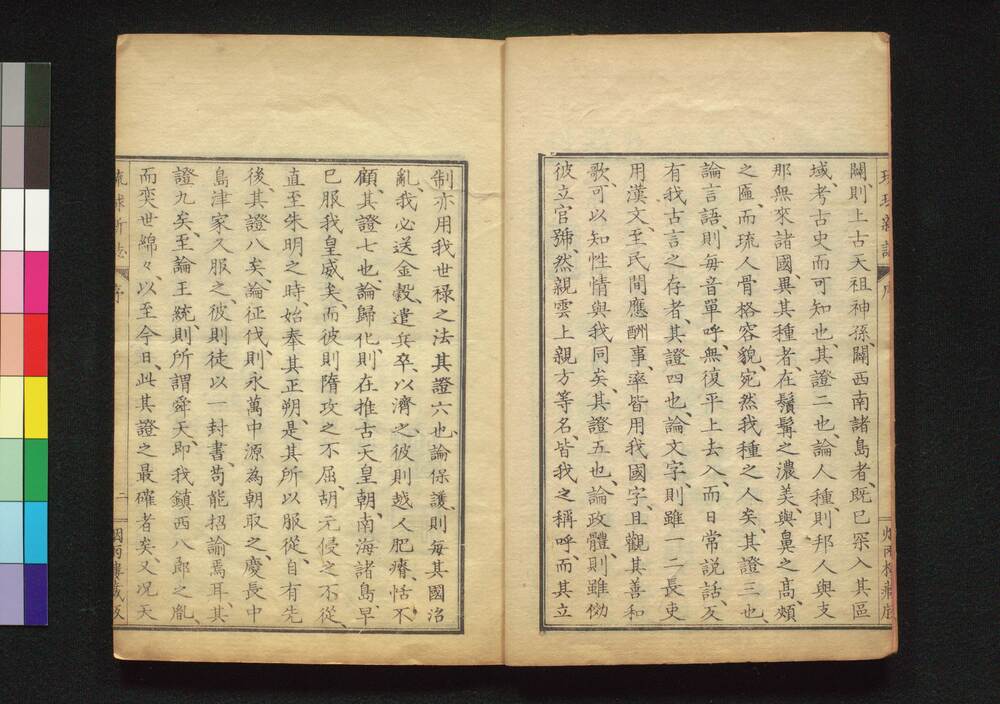 闢、則上古天祖神孫、闢西南諸島者、既已罙入其區
域、考古史而可知也、其證二也、論人種、則邦人與支
那無來諸國、異其種者、在鬚髯之濃美、與鼻之高、頰
之匾、而琉人骨格容貌、宛然我種之人矣、其證三也、
論言語、則每音單呼、無復平上去入、而日常説話、亥
有我古言之存者、其證四也、論文字、則雖一二長吏
用漢文、至民間應酬事、率皆用我國字、且觀其善和
歌、可以知性情與我同矣、其證五也、論政體、則雖倣
彼立官號、然親雲上親方等名、皆我之稱呼、而其立
制亦用我世祿之法、其證六也、論保護、則每其國治
亂、我必送金穀遣兵卒、以濟之、彼則越人肥瘠、恬不
顧、其證七也、論歸化、則在推古天皇朝、南海諸島、早
已服我皇威矣、而彼則隋攻之不屈、胡元侵之不從、
直至朱明之時、始奉其正朔、是其所以服從、自有先
後、其證八矣、論征伐、則永萬中源為朝取之、慶長中
島津家久服之、彼則徒以一封書、苟能招諭焉耳、其
證九矣、至論王統、則所謂舜天、即我鎮西八郎之胤、
而奕世綿々、以至今日、此其證之最確者矣、又况天
琉球新誌 序 二